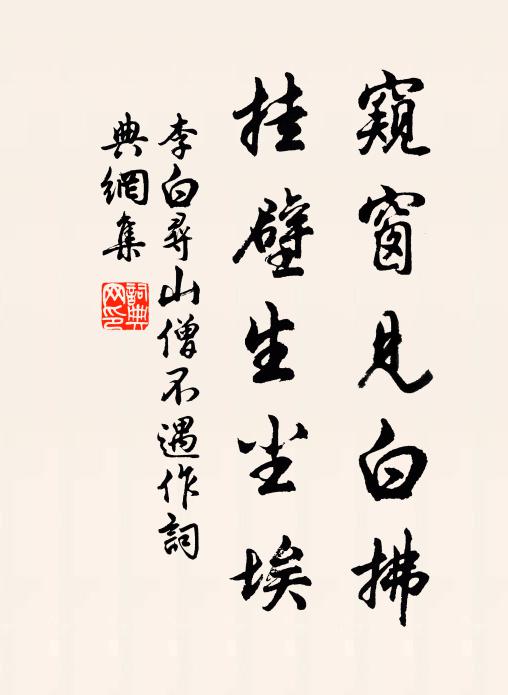 窺窗見白拂
挂壁生尘埃
李白尋山僧不遇作詞
典網集
詞典網印